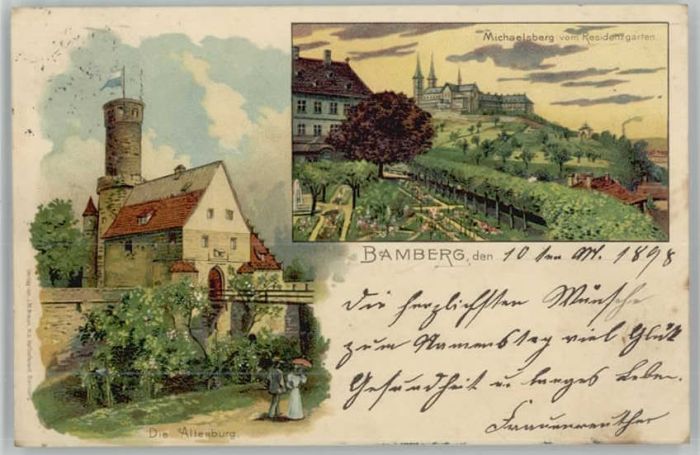 Michaelsberg vom Residenzgarten.
BAMBERG, den 10 ten 1898
Die herzlichsten Wünsche
zum Namenstag viel Glück
Gesundheit u. langes Leben.
Frauenreuther
Die Altenburg.